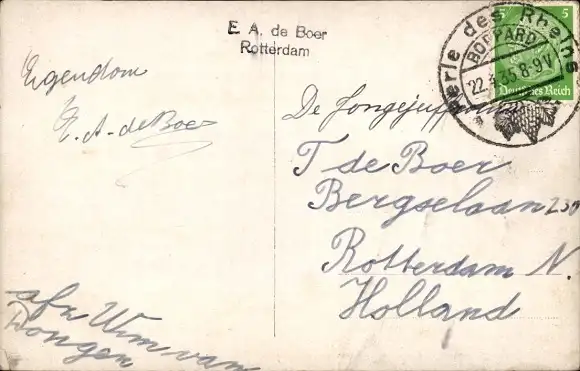 E. A. de Boer
Rotterdam
Eigendom
E. A. de Boer
afz Wim van
Dongen
Perle des Rheins
BOPPARD
22.3.35.8-9V.
5 5
Deutsches Reich
De Jongejuffrouw
T de Boer
Bergselaan 230
Rotterdam N.
Holland